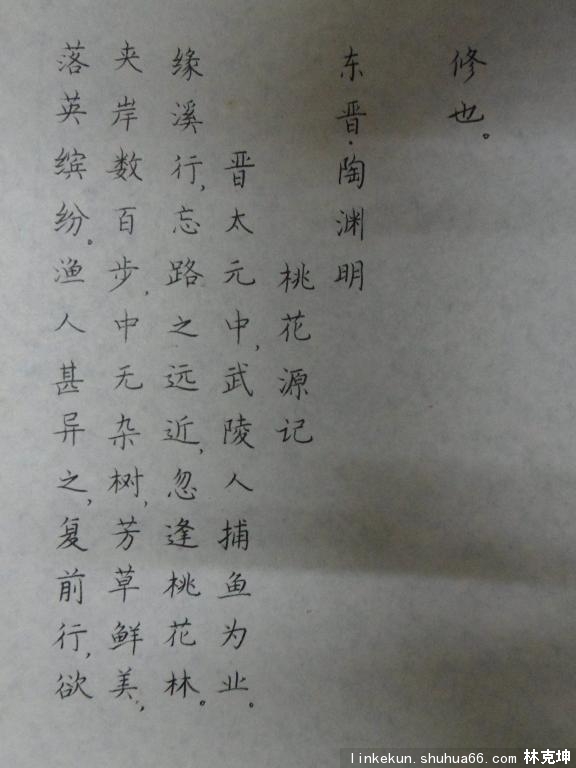 修也。
东晋·陶渊明
桃花源记
晋太元中，武陵人捕鱼为业。
缘溪行，忘路之远近，忽逢桃花林。
夹岸数百步，中无杂树，芳草鲜美，
落英缤纷。渔人甚异之，复前行，欲
linkekun.shuhua66.com 林克坤